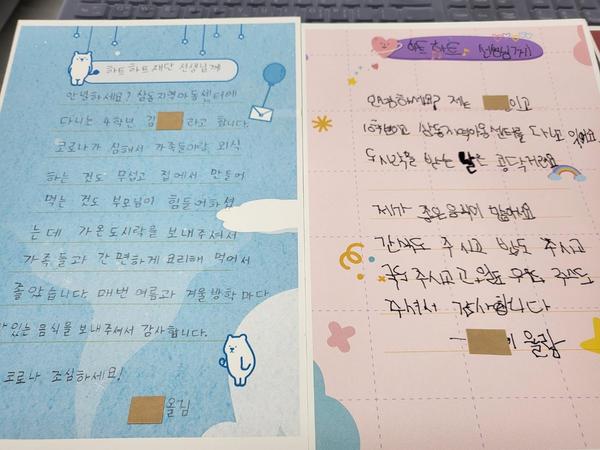 하트하트재단 선생님께
안녕하세요? 삼동지역아동센터에
다니는 4학년 김 라고 합니다.
코로나가 심해서 가족들이랑 외식
하는 것도 무섭고 집에서 만들어
먹는 것도 부모님이 힘들어하셨
는데 가온도시락을 보내주셔서
가족들과 간편하게 요리해 먹어서
좋았습니다. 매번 여름과 겨울방학 마다
있는 음식을 보내주셔서 감사합니다.
코로나 조심하세요!
올림
하트하트 선생님께
안녕하세요? 저는 이고
1학년이고 삼동지역아동센터를 다니고 있어요.
받는 날은
제가 좋은음식이
간식도 주시고 밥도 주시고
국도 주시고
주셔서 감사합니다
이 올림